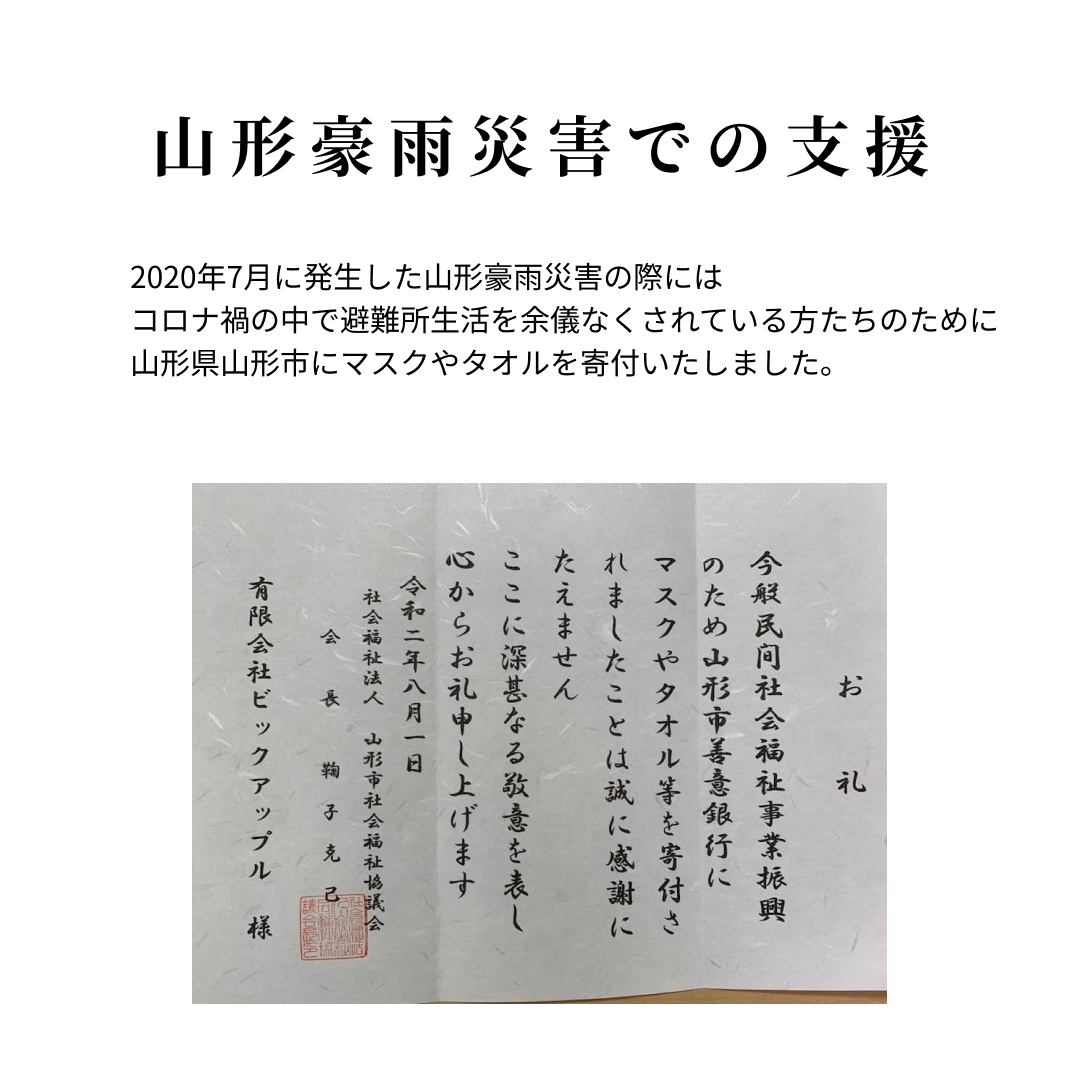 山形豪雨災害での支援
2020年7月に発生した山形豪雨災害の際には
コロナ禍の中で避難所生活を余儀なくされている方たちのために
山形県山形市にマスクやタオルを寄付いたしました。
お礼
今般民間社会福祉事業振興
のため山形市善意銀行に
マスクやタオル等を寄付さ
れましたことは誠に感謝に
たえません
ここに深甚なる敬意を表し
心からお礼申し上げます
令和二年八月一日
社会福祉法人 山形市社会福祉協議会
会長 鞠子克己
有限会社ビックアップル 様